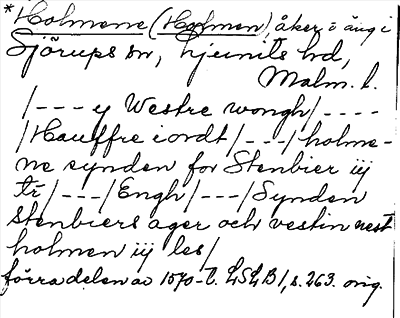 *Holmene (Holmen), åker o äng i
Sjörups sn, Ljunits hd,
Malm. l.
/--- y Westre wongh/----
/Hauffre iordt/---/holme-
ne synden for Stenbier iij
tr/---/Engh/---/Synden
stenbiers ager och vestin nest
holmen iij les/
förra delen av 1570-t. LSLB 1, s. 263. orig.